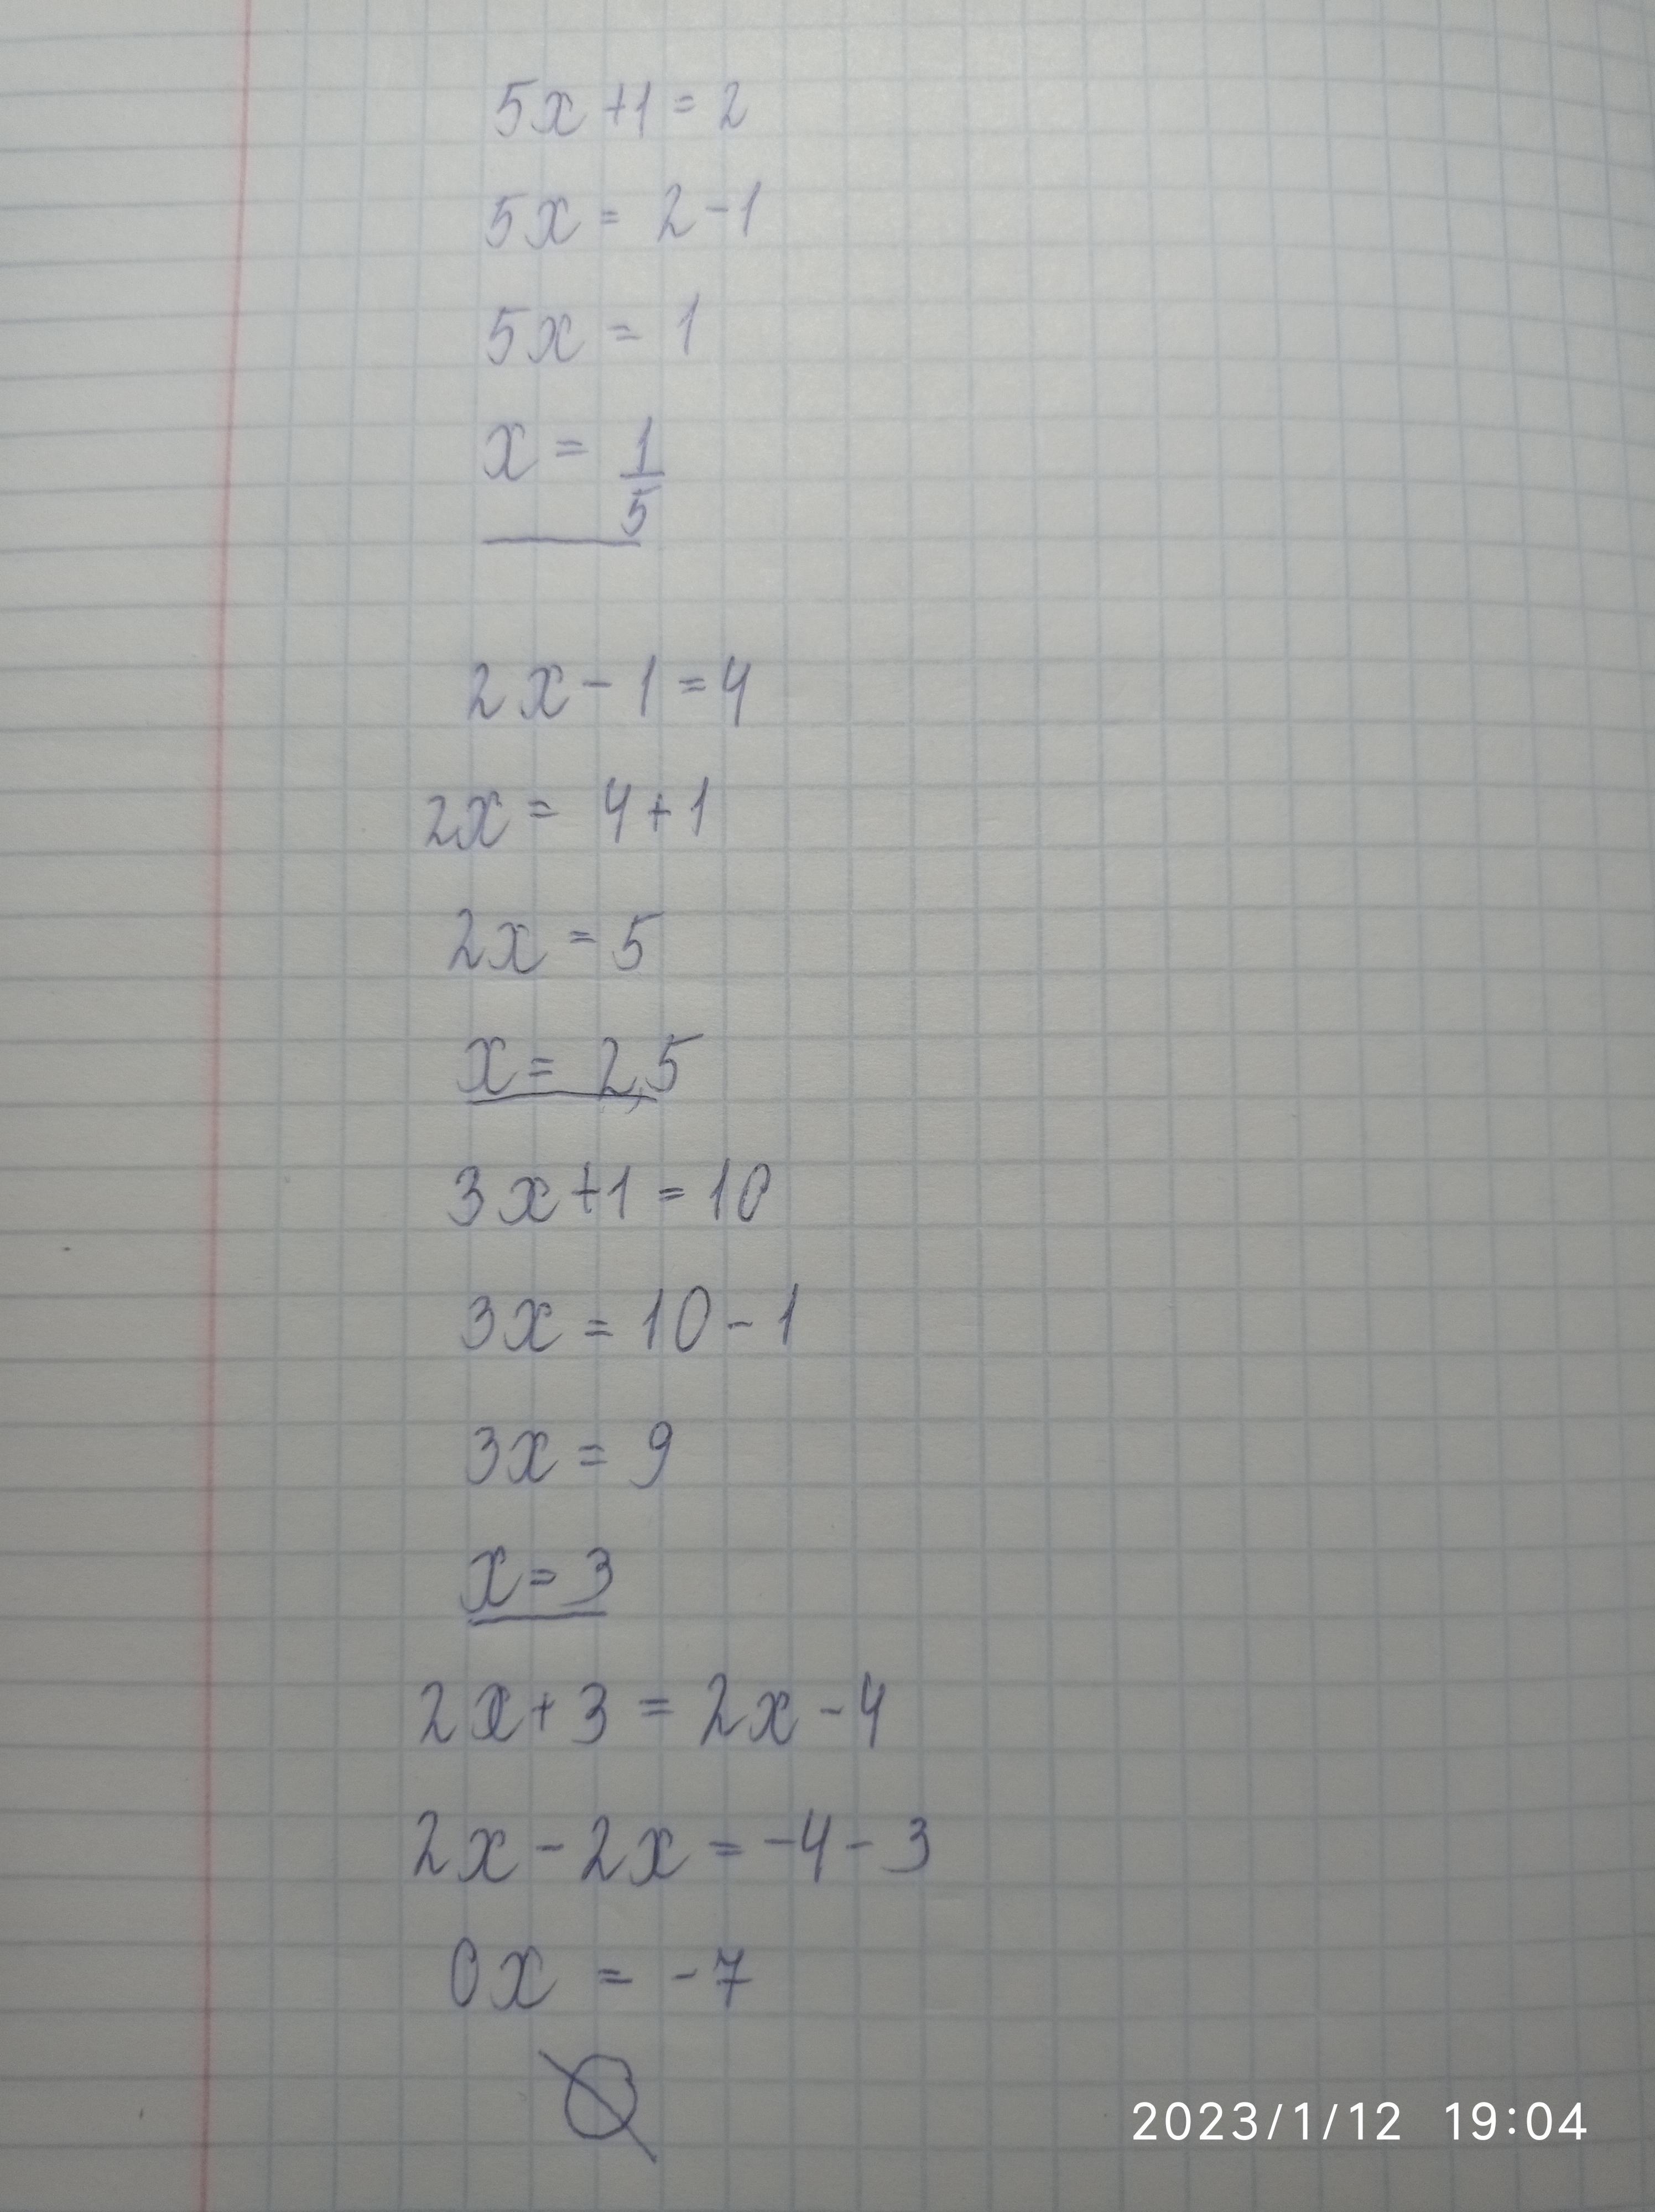 5x+1=2
5x = 2-1
5x = 1
x = 1/5
2x-1=4
2x = 4+1
2x = 5
x = 2,5
3x+1=10
3x = 10-1
3x = 9
x = 3
2x+3 = 2x-4
2x-2x = -4-3
0x = -7
∅
2023/1/12 19:04